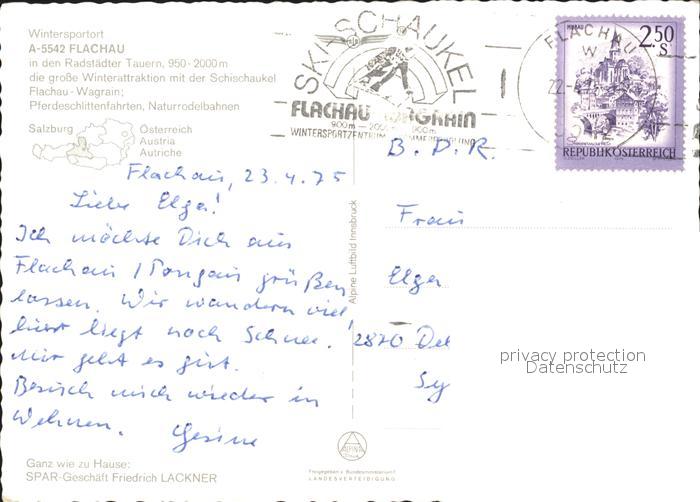 Wintersportort
A-5542 FLACHAU
in den Radstädter Tauern, 950-2000 m
die große Winterattraktion mit der Schischaukel
Flachau-Wagrain;
Pferdeschlittenfahrten, Naturrodelbahnen
Salzburg
Österreich
Austria
Autriche
SKISCHAUKEL
FLACHAU WAGRAIN
900m — 2000
WINTERSPORTZENTRUM
FLACHAU
2.50
S
REPUBLIK ÖSTERREICH
B. D. R.
Flachau, 23.4.75
Liebe Elga!
Ich möchte Dich aus
Flachau / Pongau grüßen
lassen. Wir wandern viel,
hier liegt noch Schnee.
Mir geht es gut.
Besuch mich wieder in
Wehnen. Gesine
Alpine Luftbild Innsbruck
Frau
Elga
2870 Del
Sy
privacy protection
Datenschutz
Ganz wie zu Hause:
SPAR-Geschäft Friedrich LACKNER
ALPINE
Freigegeben v. Bundesministerium f.
LANDESVERTEIDIGUNG